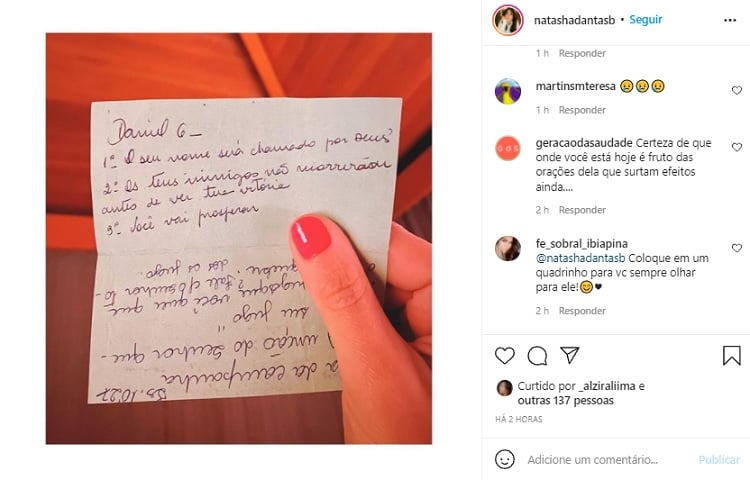 Daniel 6 –
1º O seu nome será chamado por Deus
2º Os teus inimigos não morrerão
antes de ver tua vitória
3º Você vai prosperar
você quer que
quebre? fale c/ Senhor to–
dos os jugo.
seu jugo"
unção do Senhor que–
da campanha
Is. 10:27
natashadantasb • Seguir
1 h Responder
martinsmteresa 😣😣😣
1 h Responder
geracaodasaudade Certeza de que
onde você está hoje é fruto das
orações dela que surtam efeitos
ainda....
2 h Responder
fe_sobral_ibiapina
@natashadantasb Coloque em um
quadrinho para vc sempre olhar
para ele!😊♥
2 h Responder
Curtido por _alziraliima e
outras 137 pessoas
HÁ 2 HORAS
Adicione um comentário... Publicar